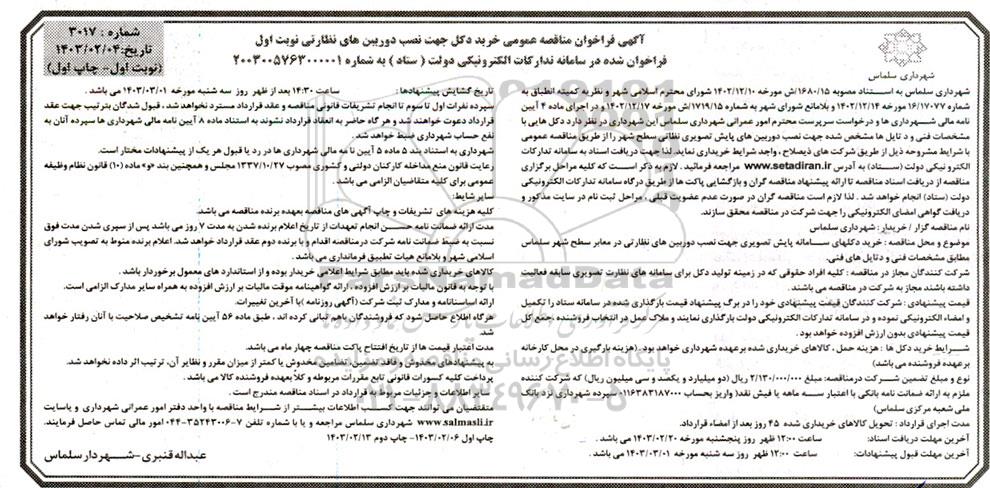 شماره : ۳۰۱۷
تاریخ: ۱۴۰۳/۰۲/۰۴
(نوبت اول - چاپ اول)
آگهی فراخوان مناقصه عمومی خرید دکل جهت نصب دوربین های نظارتی نوبت اول
فراخوان شده در سامانه تدارکات الکترونیکی دولت ( ستاد ) به شماره ۲۰۰۳۰۰۵۷۶۳۰۰۰۰۰۱
شهرداری سلماس
شهرداری سلماس به استناد مصوبه ۱۶۸۰/۱۵/ش مورخه ۱۴۰۲/۱۲/۱۰ شورای محترم اسلامی شهر و نظریه کمیته انطباق به
شماره ۱۶/۱۷۰۷۷ مورخه ۱۴۰۲/۱۲/۱۴ و بلامانع شورای شهر به شماره ۱۷۱۹/۱۵/ش مورخه ۱۴۰۲/۱۲/۱۷ و در اجرای ماده ۴ آیین
نامه مالی شهرداری ها و درخواست سرپرست محترم امور عمرانی شهرداری سلماس این شهرداری در نظر دارد دکل هایی با
مشخصات فنی و دتایل ها مشخص شده جهت نصب دوربین های پایش تصویری نظائی سطح شهر را از طریق مناقصه عمومی
با شرایط مشروحه ذیل از طریق شرکت های ذیصلاح ، واجد شرایط خریداری نماید. لذا جهت دریافت اسناد به سامانه تدارکات
الکترونیکی دولت (ستاد) به آدرس www.setadiran.ir مراجعه فرمائید . لازم به ذکر است که کلیه مراحل برگزاری
مناقصه از دریافت اسناد مناقصه تا ارائه پیشنهاد مناقصه گران و بازگشایی پاکت ها از طریق درگاه سامانه تدارکات الکترونیکی
دولت (ستاد) انجام خواهد شد . لذا لازم است مناقصه گران در صورت عدم عضویت قبلی ، مراحل ثبت نام در سایت مذکور و
دریافت گواهی امضای الکترونیکی را جهت شرکت در مناقصه محقق سازند.
نام مناقصه گزار / خریدار : شهرداری سلماس
موضوع و محل مناقصه : خرید دکلهای سامانه پایش تصویری جهت نصب دوربین های نظارتی در معابر سطح شهر سلماس
مطابق مشخصات فنی و دتایل های فنی.
شرکت کنندگان مجاز در مناقصه : کلیه افراد حقوقی که در زمینه تولید دکل برای سامانه های نظارت تصویری سابقه فعالیت
داشته باشند مجاز به شرکت در مناقصه می باشند.
قیمت پیشنهادی : شرکت کنندگان قیمت پیشنهادی خود را در برگ پیشنهاد قیمت بارگذاری شده در سامانه ستاد را تکمیل
و امضاء الکترونیکی نموده و در سامانه تدارکات الکترونیکی دولت بارگذاری نمایند و ملاک عمل در انتخاب فروشنده ، جمع کل
قیمت پیشنهادی بدون ارزش افزوده خواهد بود .
شرایط خرید دکل ها : هزینه حمل ، کالاهای خریداری شده برعهده شهرداری خواهد بود. (هزینه بارگیری در محل کارخانه
برعهده فروشنده می باشد)
نوع و مبلغ تضمین شرکت درمناقصه: مبلغ ۲/۱۳۰/۰۰۰/۰۰۰ ریال (دو میلیارد و یکصد و سی میلیون ریال) که شرکت کننده
ملزم به ارائه ضمانت نامه بانکی با اعتبار سه ماهه یا فیش نقد( واریز بحساب ۰۱۱۶۳۸۳۱۸۷۰۰۰ سپرده شهرداری نزد بانک
ملی شعبه مرکزی سلماس)
مدت اجرای قرارداد : تحویل کالاهای خریداری شده ۴۵ روز بعد از امضاء قرارداد.
آخرین مهلت دریافت اسناد: ساعت ۱۲:۰۰ ظهر روز پنجشنبه مورخه ۱۴۰۳/۰۲/۲۰ می باشد.
آخرین مهلت قبول پیشنهادات: ساعت ۱۲:۰۰ ظهر روز سه شنبه مورخه ۱۴۰۳/۰۳/۰۱ می باشد .
تاریخ گشایش پیشنهادها : ساعت ۱۴:۳۰ بعد از ظهر روز سه شنبه مورخه ۱۴۰۳/۰۳/۰۱ می باشد .
سپرده نفرات اول تا سوم تا انجام تشریفات قانونی مناقصه و عقد قرارداد مسترد نخواهد شد. قبول شدگان بترتیب جهت عقد
قرارداد دعوت خواهند شد و هر گاه حاضر به انعقاد قرارداد نشوند به استناد ماده ۸ آیین نامه مالی شهرداری ها سپرده آنان به
نفع حساب شهرداری ضبط خواهد شد.
شهرداری به استناد بند ۵ ماده ۵ آیین نامه مالی شهرداری ها در رد یا قبول هر یک از پیشنهادات مختار است.
رعایت قانون منع مداخله کارکنان دولتی و کشوری مصوب ۱۳۳۷/۱۰/۲۷ مجلس و همچنین بند «و» ماده (۱۰) قانون نظام وظیفه
عمومی برای کلیه متقاضیان الزامی می باشد .
سایر شرایط:
کلیه هزینه های تشریفات و چاپ آگهی های مناقصه بعهده برنده مناقصه می باشد.
مدت ارائه ضمانت نامه حسن انجام تعهدات از تاریخ اعلام برنده شدن به مدت ۷ روز می باشد پس از سپری شدن مدت فوق
نسبت به ضبط ضمانت نامه شرکت درمناقصه اقدام و با برنده دوم عقد قرارداد خواهد شد. اعلام برنده منوط به تصویب شورای
اسلامی شهر و بلامانع هیات تطبیق فرمانداری می باشد.
کالاهای خریداری شده باید مطابق شرایط اعلامی خریدار بوده و از استاندارد های معمول برخوردار باشد.
با توجه به قانون مالیات بر ارزش افزوده ، ارائه گواهینامه موقت مالیات بر ارزش افزوده به همراه سایر مدارک الزامی است.
ارائه اساسنامه و مدارک ثبت شرکت (آگهی روزنامه )با آخرین تغییرات.
هرگاه اطلاع حاصل شود که فروشندگان باهم تبانی کرده اند ، طبق ماده ۵۶ آیین نامه تشخیص صلاحیت با آنان رفتار خواهد
شد.
مدت اعتبار قیمت ها از تاریخ افتتاح پاکت مناقصه چهار ماه می باشد.
به پیشنهادهای مخدوش و فاقد تضمین یا تضامین مخدوش یا کمتر از میزان مقرر و نظایر آن، ترتیب اثر داده نخواهد شد.
پرداخت کلیه کسورات قانونی تابع مقررات مربوطه و کلاً بعهده فروشنده کالا می باشد .
سایر اطلاعات و جزئیات مربوطه با قرارداد در اسناد مناقصه مندرج است .
متقاضیان می توانند جهت کسب اطلاعات بیشتر از شرایط مناقصه با واحد دفتر امور عمرانی شهرداری و یاسایت
www.salmasli.ir شهرداری سلماس مراجعه و یا با شماره تلفن ۷-۳۵۲۴۳۰۰۶-۰۴۴ امور مالی تماس حاصل فرمایند.
چاپ اول ۱۴۰۳/۰۲/۰۶- چاپ دوم ۱۴۰۳/۰۲/۱۳
عبداله قنبری - شهردار سلماس
پایگاه اطلاع رسانی مناقصه و مزایده
۰۲۱-۸۸۳۴۹۶۷۰-۵